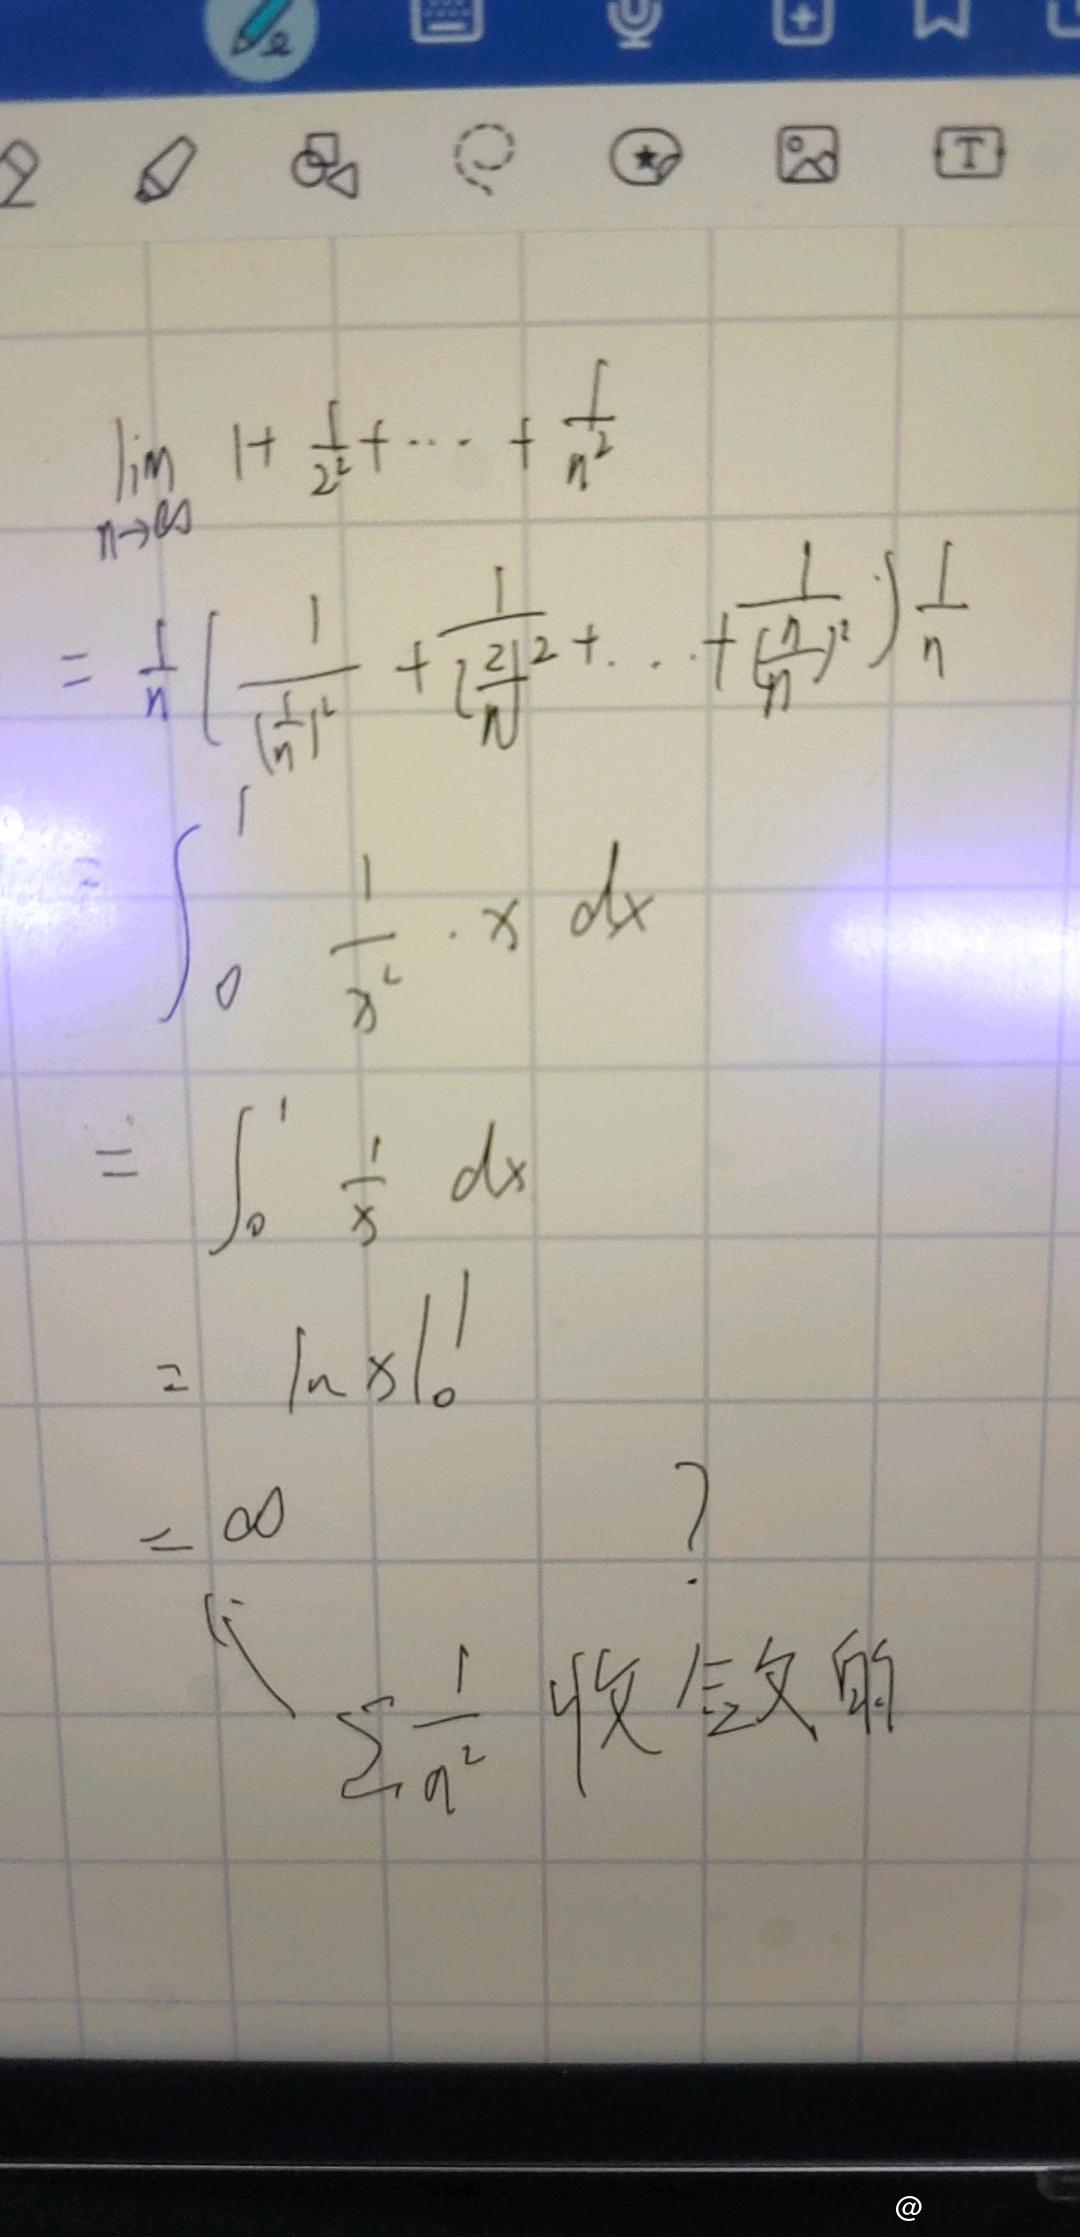 lim n→∞ 1 + 1/2² + ··· + 1/n²
= 1/n ( 1/(1/n)² + 1/(2/n)² + ... + 1/(n/n)² ) 1/n
= ∫₀¹ 1/x² · x dx
= ∫₀¹ 1/x dx
= ln x |₀¹
= ∞ ?
∑ 1/n² 收敛的
T
@